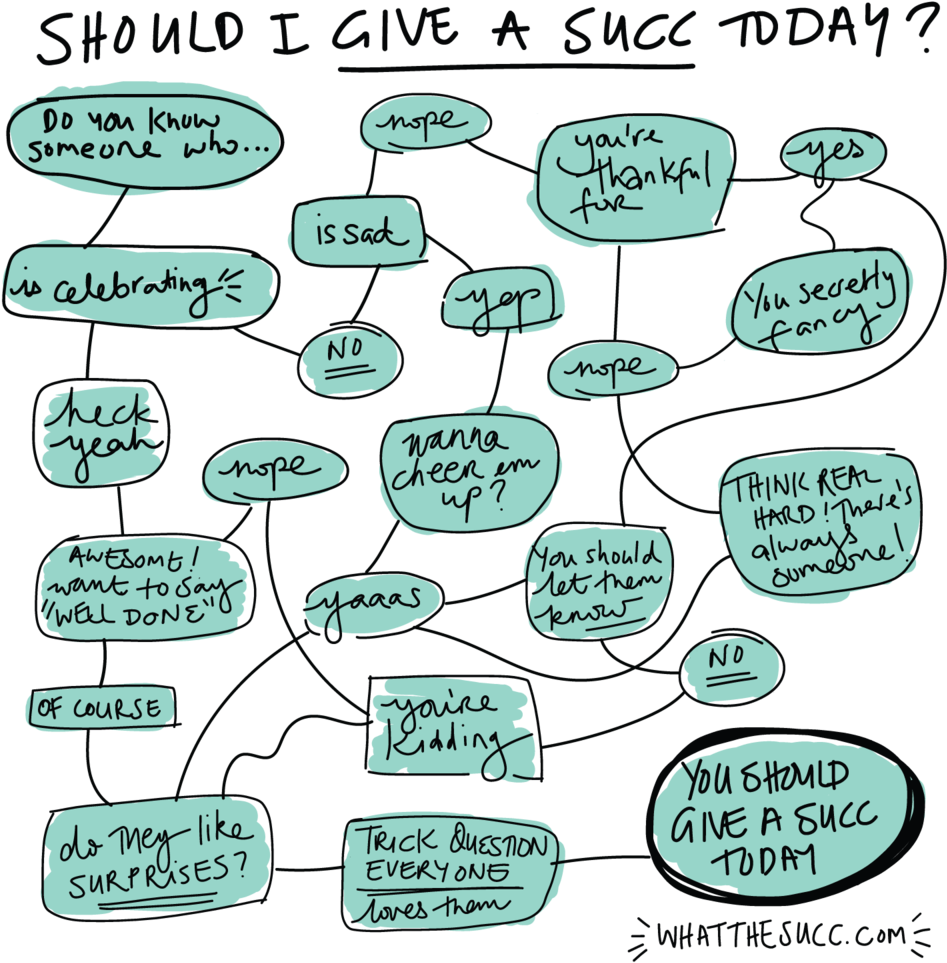 SHOULD I GIVE A SUCC TODAY?
Do you know
someone who...
nope
you're
thankful
for
yes
is sad
is celebrating
yep
You secretly
fancy
NO
nope
heck
yeah
wanna
cheer em
up?
nope
THINK REAL
HARD! There's
always
someone!
AWESOME!
want to say
"WELL DONE"
You should
let them
know
yaaas
NO
OF COURSE
you're
kidding
YOU SHOULD
GIVE A SUCC
TODAY
do they like
SURPRISES?
TRICK QUESTION
EVERYONE
loves them
WHATTHESUCC.COM